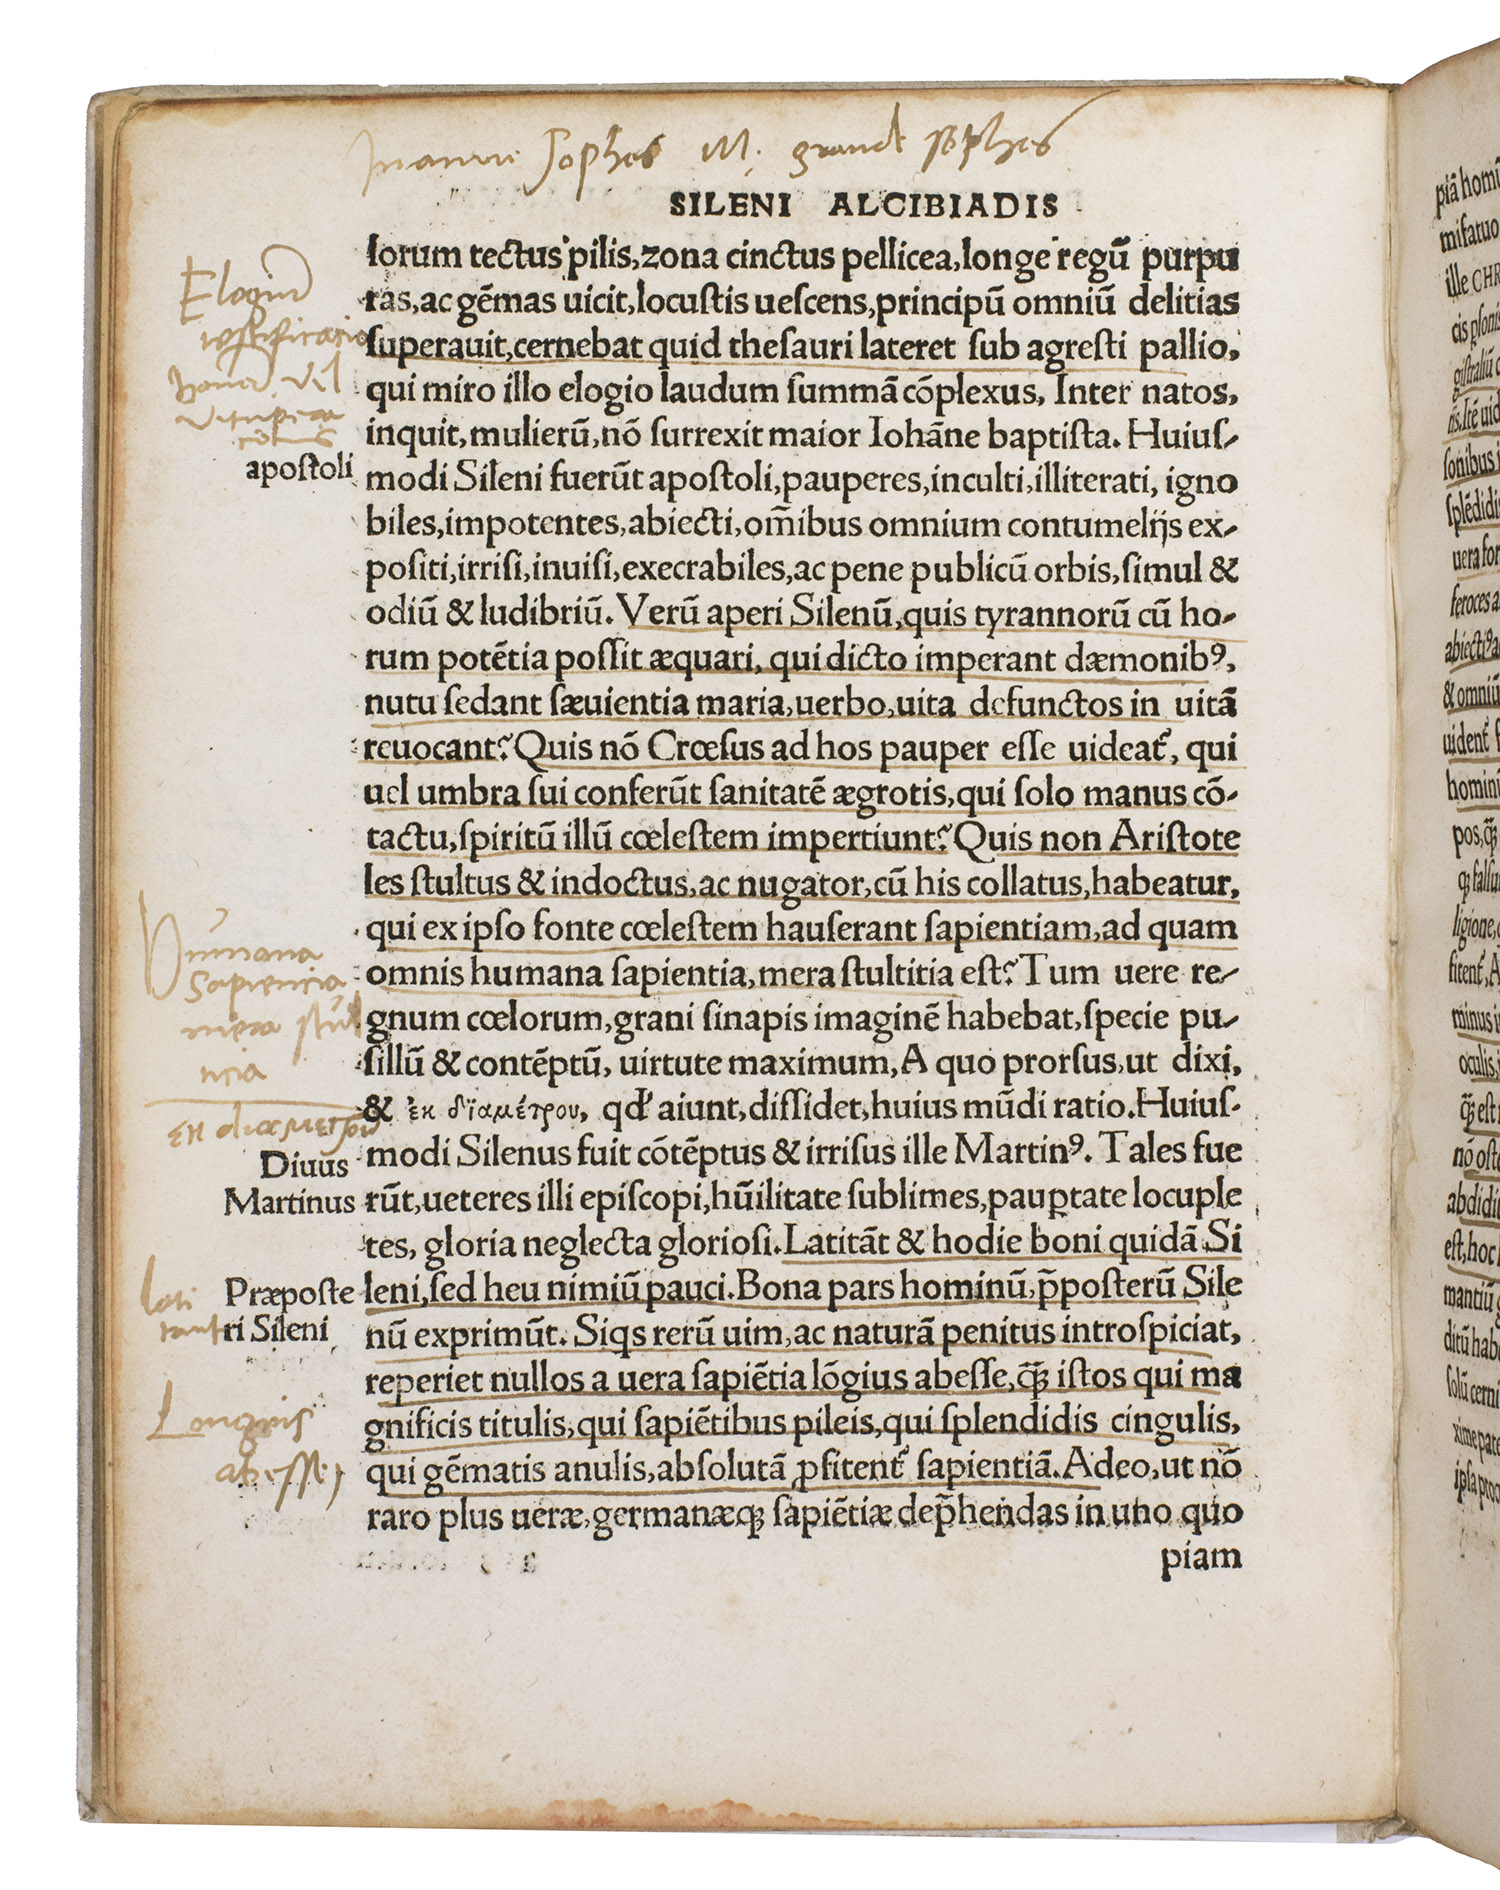 SILENI ALCIBIADIS
lorum tectus pilis, zona cinctus pellicea, longe regū purpu
ras, ac gēmas uicit, locustis uescens, principū omniū delitias
superauit, cernebat quid thesauri lateret sub agresti pallio,
qui miro illo elogio laudum summā cōplexus, Inter natos,
inquit, mulierū, nō surrexit maior Iohāne baptista. Huius-
apostoli
modi Sileni fuerūt apostoli, pauperes, inculti, illiterati, igno
biles, impotentes, abiecti, om̄ibus omnium contumelijs ex-
positi, irrisi, inuisi, execrabiles, ac pene publicū orbis, simul &
odiū & ludibriū. Verū aperi Silenū, quis tyrannorū cū ho-
rum potētia possit æquari, qui dicto imperant dæmonibꝰ,
nutu sedant sæuientia maria, uerbo, uita defunctos in uitā
reuocant? Quis nō Crœsus ad hos pauper esse uideat᷑, qui
uel umbra sui conferūt sanitatē ægrotis, qui solo manus cō-
tactu, spiritū illū cœlestem impertiunt? Quis non Aristote
les stultus & indoctus, ac nugator, cū his collatus, habeatur,
qui ex ipso fonte cœlestem hauserant sapientiam, ad quam
omnis humana sapientia, mera stultitia est? Tum uere re-
gnum cœlorum, grani sinapis imaginē habebat, specie pu-
sillū & contēptū, uirtute maximum, A quo prorsus, ut dixi,
& ἐκ διαμέτρου, qd' aiunt, dissidet, huius mūdi ratio. Huius-
modi Silenus fuit cōtēptus & irrisus ille Martinꝰ. Tales fue
Diuus
Martinus
rūt, ueteres illi episcopi, hūilitate sublimes, paup̱tate locuple
tes, gloria neglecta gloriosi. Latitāt & hodie boni quidā Si
Præposte
ri Sileni
leni, sed heu nimiū pauci. Bona pars hominū, p̄posterū Sile
nū exprimūt. Siqs rerū uim, ac naturā penitus introspiciat,
reperiet nullos a uera sapiētia lōgius abesse, q̄ꝫ istos qui ma
gnificis titulis, qui sapiētibus pileis, qui splendidis cingulis,
qui gēmatis anulis, absolutā ꝓfitent᷑ sapientiā. Adeo, ut nō
raro plus ueræ, germanæqꝫ sapiētiæ dep̄hendas in uno quo
piam
Elogiū
Humana
sapiencia
mera stul
ticia
ἐκ διαμετρου
lati
tant
Longius
abesse